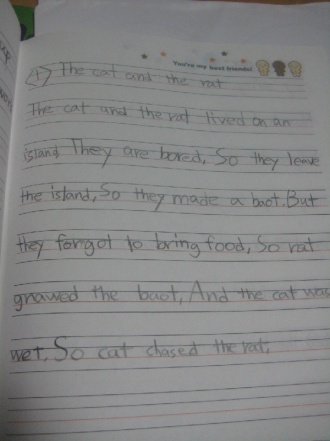 You're my best friends!
<1> The cat and the rat
The cat and the rat lived on an
island, They are bored, So they leave
the island, So they made a baot. But
they forgot to bring food, So rat
gnawed the baot, And the cat was
wet. So cat chased the rat.